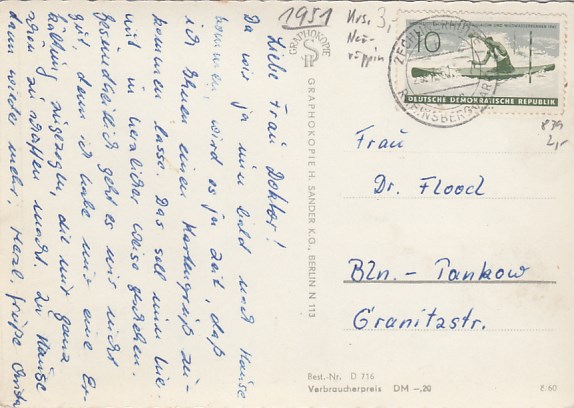 1951 Krs. 3,-
Neu-
ruppin
GRAPHOKOPIE
GRAPHOKOPIE H. SANDER K.G., BERLIN N 113
Liebe Frau Doktor!
Da wir ja nun bald nach Hause
kommen wird es ja Zeit, daß
ich Ihnen einen Kartengruß zu-
kommen lasse. Das soll nun hie-
mit in herzlicher Weise geschehen.
Gesundheitlich geht es mir nicht
gut, denn ich habe mir eine Er-
kältung zugezogen, die mir ganz
schön zu schaffen macht. Zu Hause
dann wieder mehr. Herzl. Grüße
10
DEUTSCHE DEMOKRATISCHE REPUBLIK
879
2,-
Frau
Dr. Flood
Bln. - Pankow
Granitzstr.
Best.-Nr. D 716
Verbraucherpreis DM -,20
8 60